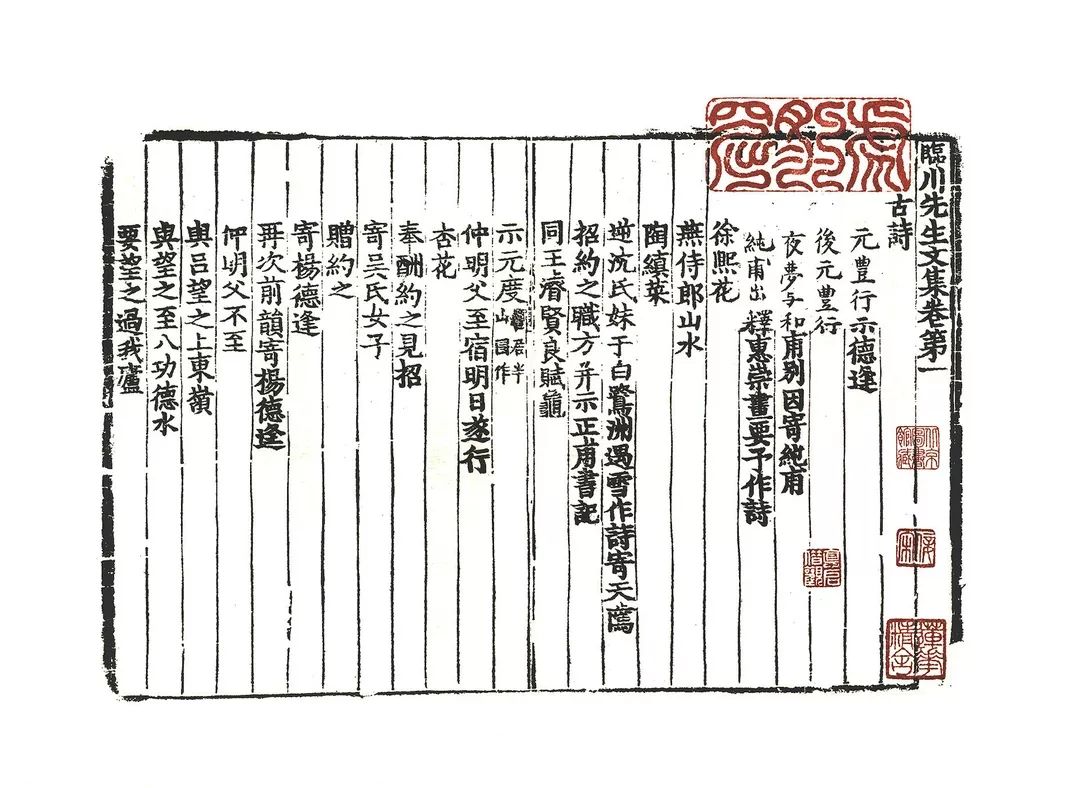 臨川先生文集卷第一
古詩
元豊行示德逢
後元豊行
夜夢与和甫别因寄純甫
純甫出釋惠崇畫要予作詩
徐熙花
燕侍郎山水
陶縝菜
逆沈氏妹于白鷺洲遇雪作詩寄天
招約之職方并示正甫書記
同王濬賢良賦龜
示元度 營居半山園作
仲明父至宿明日遂行
杏花
奉酬約之見招
寄吳氏女子
贈約之
寄楊德逢
再次前韻寄楊德逢
仲明父不至
與呂望之上東嶺
與望之至八功德水
要望之過我廬